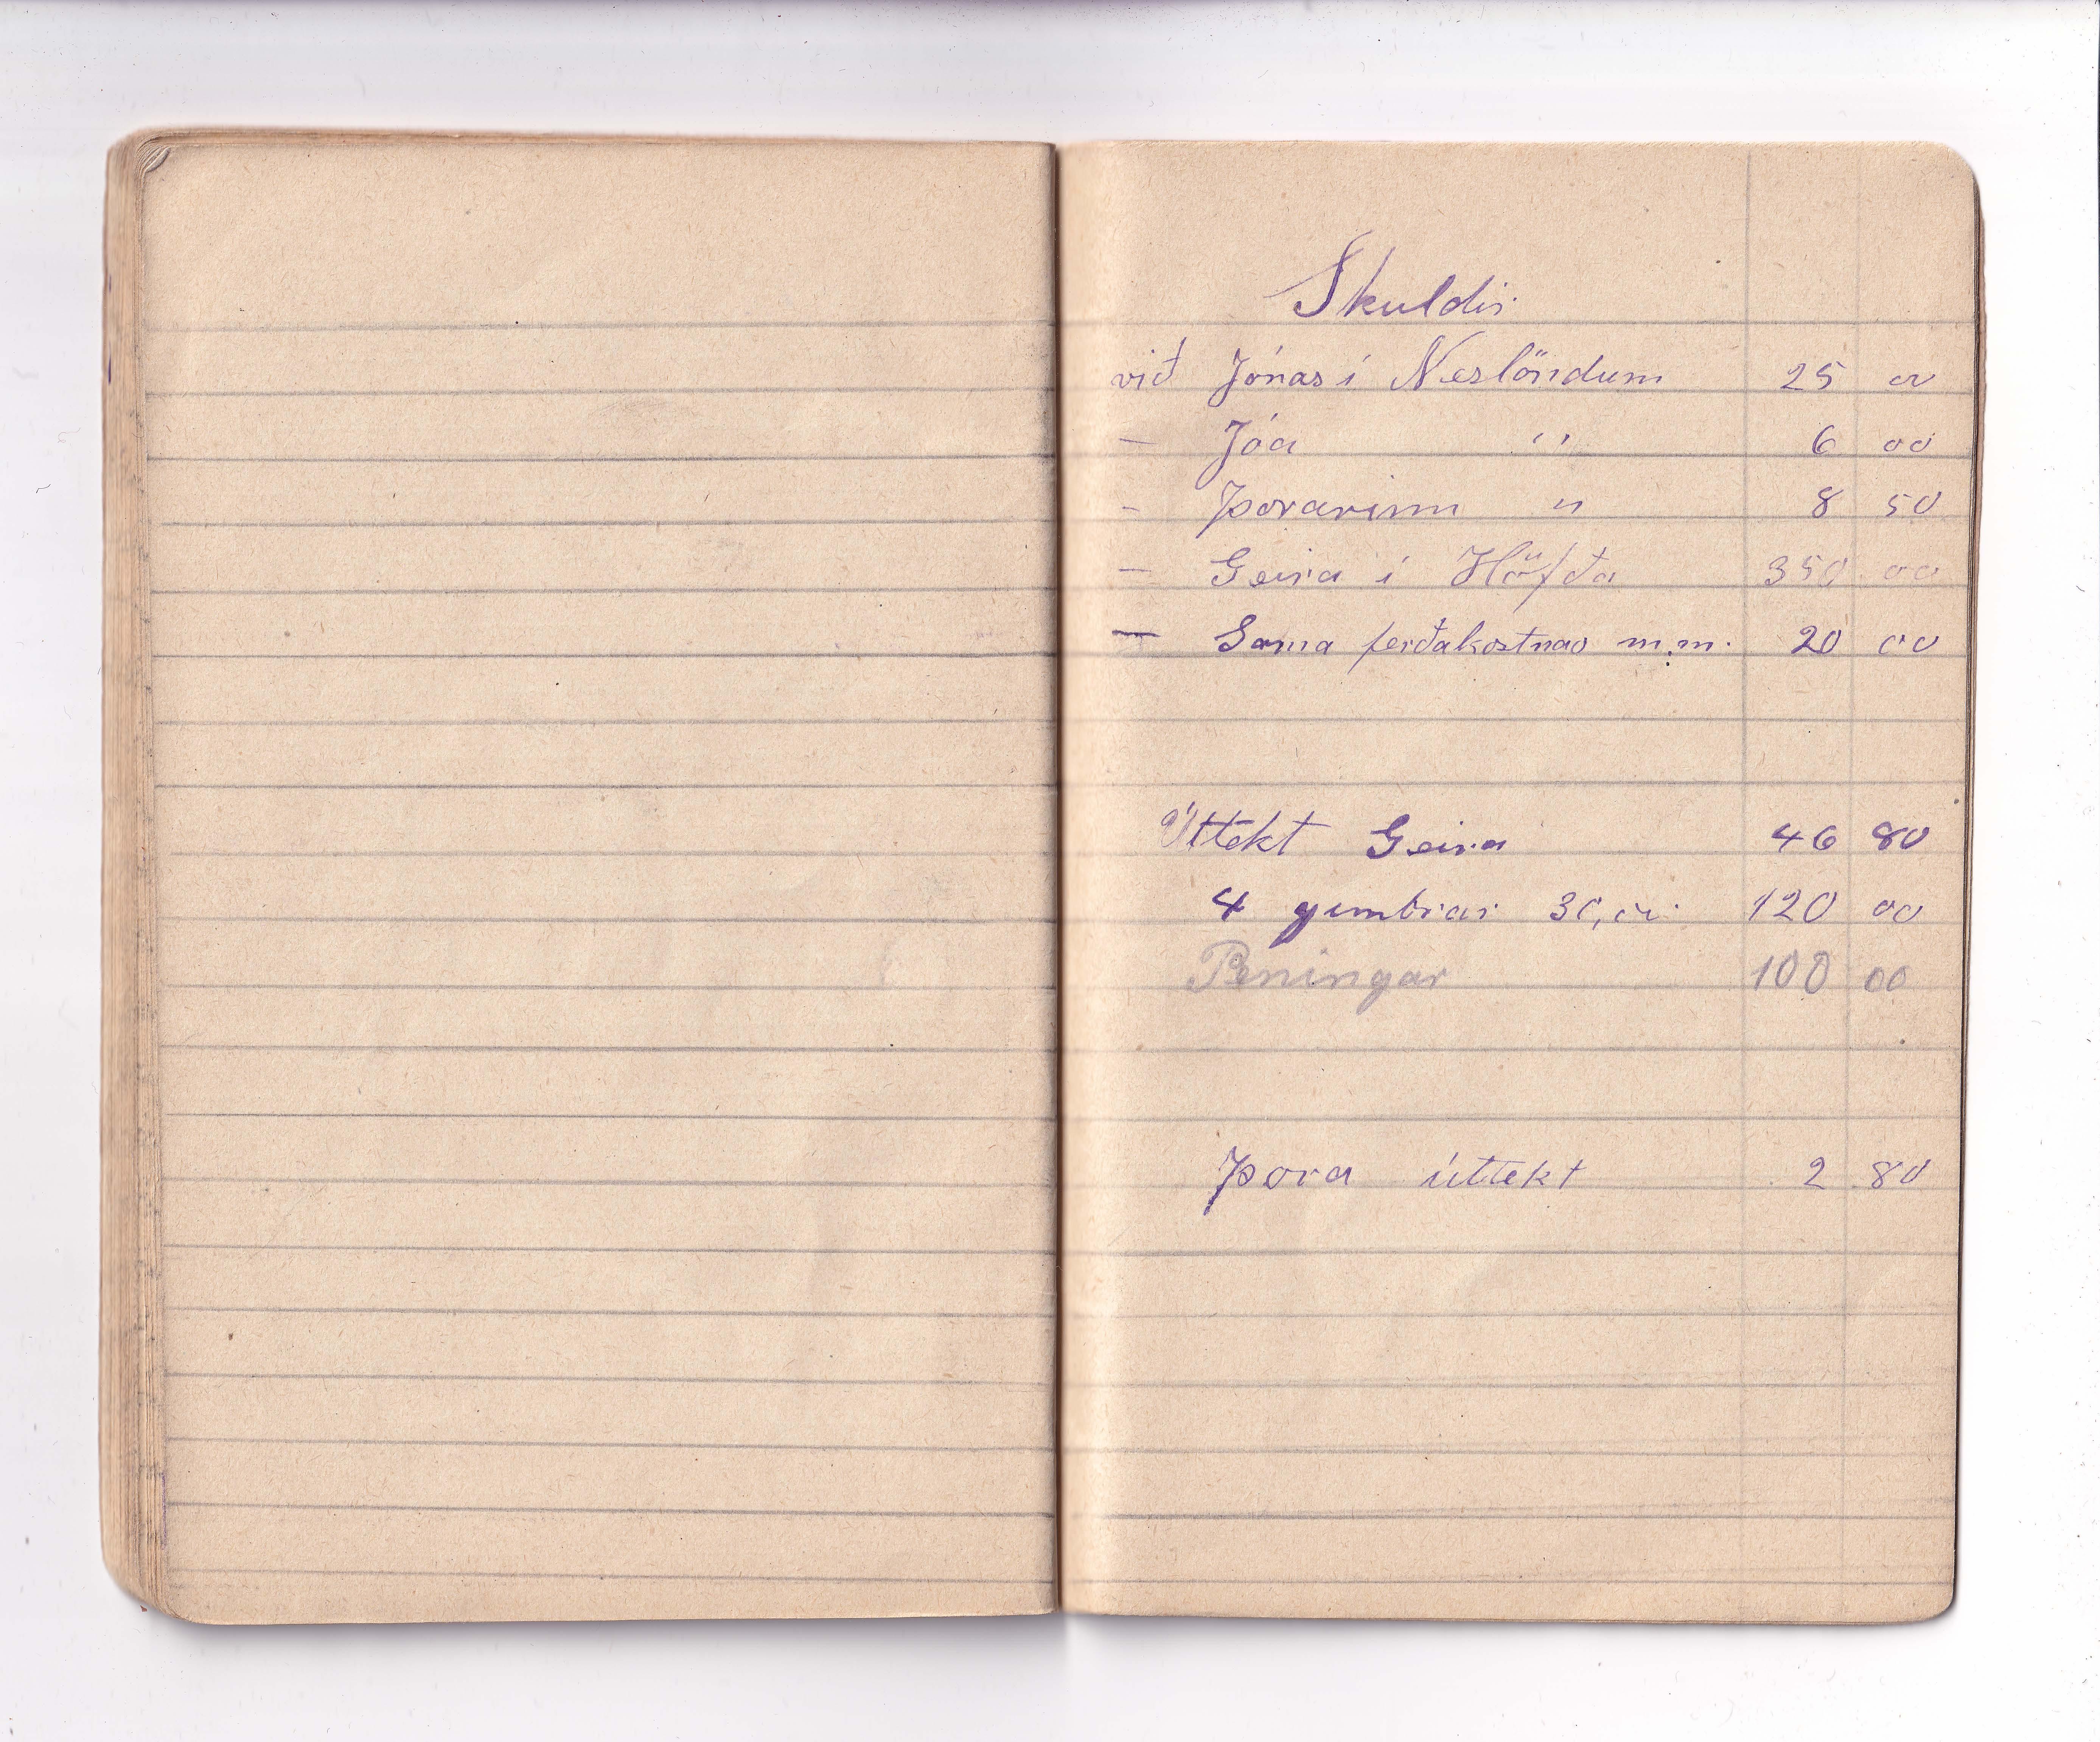 Skuldir
við Jónas í Neslöndum 25 00
— Jóa " 6 00
- Þorarinn " 8 50
— Geira í Höfða 350 00
— Sama ferðakostnað m.m. 20 00
Úttekt Geira 46 80
4 gimbrar 30,00 120 00
Peningar 100 00
Þora úttekt 2 80